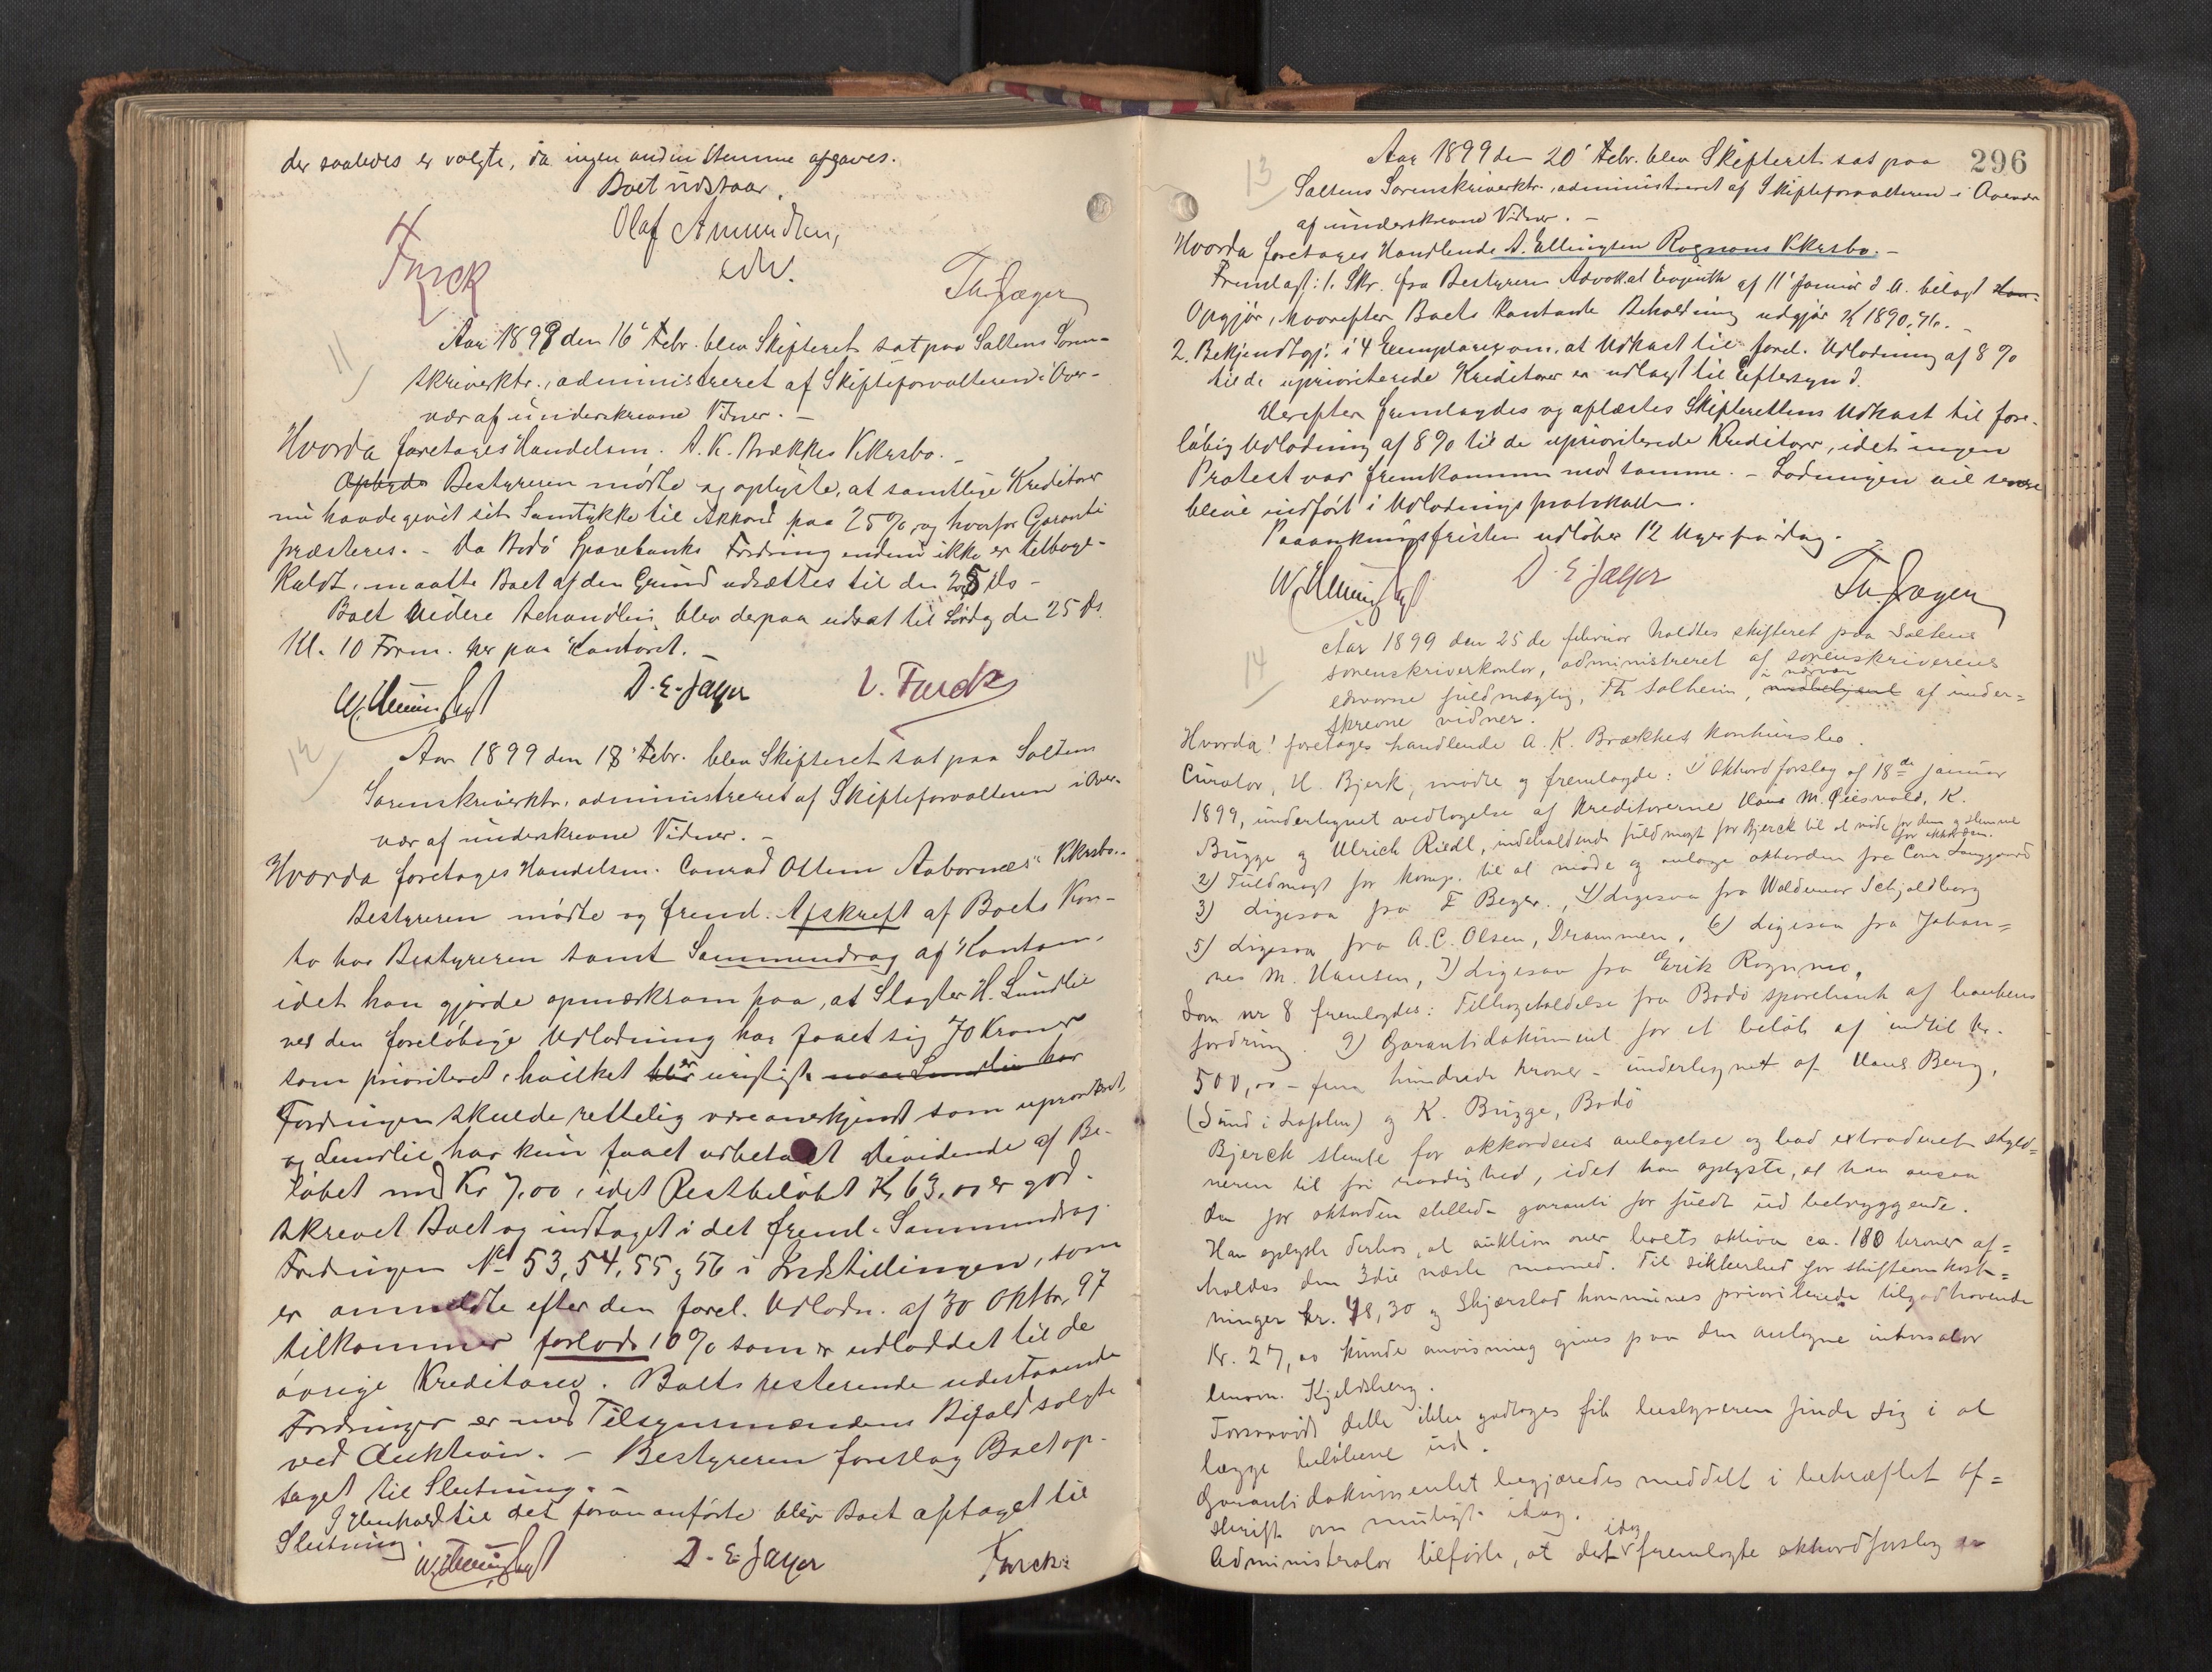 der saaledes er valgte, da ingen anden Stemme afgaves.
Boet udstaar.
Olaf Amundsen,
edv.
Furck
Th. Jæger
11
Aar 1899 den 16' Febr. blev Skifteret sat paa Saltens Soren-
skriverktr., administreret af Skifteforvalteren i Over-
vær af underskrevne Vidner. -
Hvorda foretages Handelsm. A. K. Brækkes Kkrsbo. -
Bestyreren mødte og oplyste, at samtlige Kreditorer
nu havde givet sit Samtykke til Akkord paa 25%, og hvorfor Garanti
præsteres. - Da Bodö Sparebanks Fordring endnu ikke er tilbage-
kaldt, maatte Boet af den Grund udsættes til den 25 ds -
Boet videre Behandling blev derpaa udsat til Lørdag den 25 ds.
Kl. 10 Form. her paa Kontoret. -
D. E. Jæger
L. Furck
12
Aar 1899 den 18' Febr. blev Skifteret sat paa Saltens
Sorenskriverktr. administreret af Skifteforvalteren i Over-
vær af underskrevne Vidner. -
Hvorda foretages Handelsm. Conrad Ottem Aabornæs' Kkrsbo. -
Bestyreren mødte og freml. Afskrift af Boets Kon-
to hos Bestyreren samt Sammendrag af Kontoen,
idet han gjorde opmærksom paa, at Slagter H. Lundlie
ved den foreløbige Udlodning har faaet sig 70 Kroner
som prioriteret, hvilket er urigtigt. naar Lundlie har
Fordringen skulde rettelig være anerkjendt som uprioritert,
og Lundlie har kun faaet udbetalt Dividende af Be-
løbet med Kr 7,00, idet Restbeløbet Kr 63,00 er god-
skrevet Boet og indtaget i det freml. Sammendrag.
Fordringen No 53, 54, 55 og 56 i Indstillingen, som
er anmeldte efter den forel. Udlodn. af 30 Oktbr. 97
tilkommer forlods 10% som er udloddet til de
øvrige Kreditorer. Boets resterende udestaaende
Fordringer er med Tilsynsmændens Bifald solgte
ved Auktion. - Bestyreren foreslog Boet op-
taget til Slutning. -
I Henhold til det foran anførte blev Boet optaget til
Slutning.
D. E. Jæger
Furck.
296
13
Aar 1899 den 20' Febr. blev Skifteret sat paa
Saltens Sorenskriverktr., administreret af Skifteforvalteren i Overvær
af underskrevne Vidner. -
Hvorda foretages Handlende A. Ellingsen Rognans Kkrsbo. -
Fremlagt: 1. Skr. fra Bestyreren Advokat af 11' Januar d. A. bilagt
Opgjør, hvorefter Boets kontante Beholdning udgjør K 1890,76. -
2. Bekjendtgj. i 4 Exemplarer om, at Udkast til forel. Udlodning af 8%
til de uprioriterede Kreditorer er udlagt til Eftersyn d.
Derefter fremlagdes og oplæstes Skifterettens Udkast til fore-
løbig Udlodning af 8% til de uprioriterede Kreditorer, idet ingen
Protest var fremkommen mod samme. - Lodningen vil senere
blive indført i Udlodningsprotokollen.
Paaankningsfristen udløber 12 Uger fra idag.
D. E. Jæger
Th. Jæger
14
Aar 1899 den 25de februar holdtes skifteret paa Saltens
sorenskriverkontor, administreret af sorenskriverens
edsvorne fuldmægtig, Th. Solheim, i nærvær af under=
skrevne vidner.
Hvorda! foretages handlende A. K. Brækkes konkursbo.
Curator, H. Bjerk, mødte og fremlagde: 1) Akkordforslag af 18de januar
1899, undertegnet vedtagelse af kreditorerne Hans M. K.
Brügge og Ulrich Riedl, indeholdende fuldmagt for Bjerck til at møde for dem og stemme
for akkorden.
2) Fuldmagt for komp. til at møde og antage akkorden fra Conr. Langgaard
3) Ligesaa fra F Beyer., 4) Ligesaa fra Waldemar Schjoldborg
5) Ligesaa fra A. C. Olsen, Drammen, 6) Ligesaa fra Johan=
nes M. Hansen, 7) Ligesaa fra Erik Rognmo,
Som nr 8 fremlagdes: Tilbagekaldelse fra Bodö sparebank af bankens
fordring. 9) Garantidokument for et beløb af indtil kr.
500,00 - fem hundrede kroner - undertegnet af Hans Berg,
(Sund i Lofoten) og K. Brügge, Bodö
Bjerck stemte for akkordens antagelse og bad extraderet skyld=
neren til fri raadighed, idet han oplyste, at han ansaa
den for akkorden stillede garanti for fuldt ud betryggende.
Han oplyste derhos, at auktion over boets aktiva ca. 180 kroner af=
holdes den 3die næste maaned. Til sikkerhed for skifteomkost=
ninger kr. 48,30 og Skjærstad kommunes prioriterede tilgodehavende
kr. 27,00 kunde anvisning gives paa den antagne inkassator
lensm. Kjeldsberg.
Forsaavidt dette ikke godtoges fik bestyreren finde sig i at
lægge beløbene ud.
Garantidokumentet begjæredes meddelt i bekræftet af=
skrift om muligt idag.
Administrator tilførte, at det idag fremlagte akkordforslag er